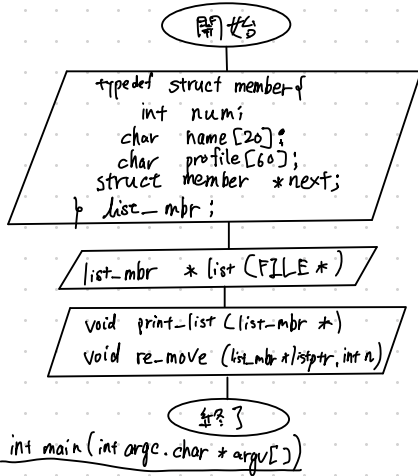 開始
typedef struct member{
int num;
char name[20];
char profile[60];
struct member *next;
} list_mbr;
list_mbr *list (FILE *)
void print_list (list_mbr *)
void re_move (list_mbr *listptr, int n)
終了
int main(int argc. char * argv[])